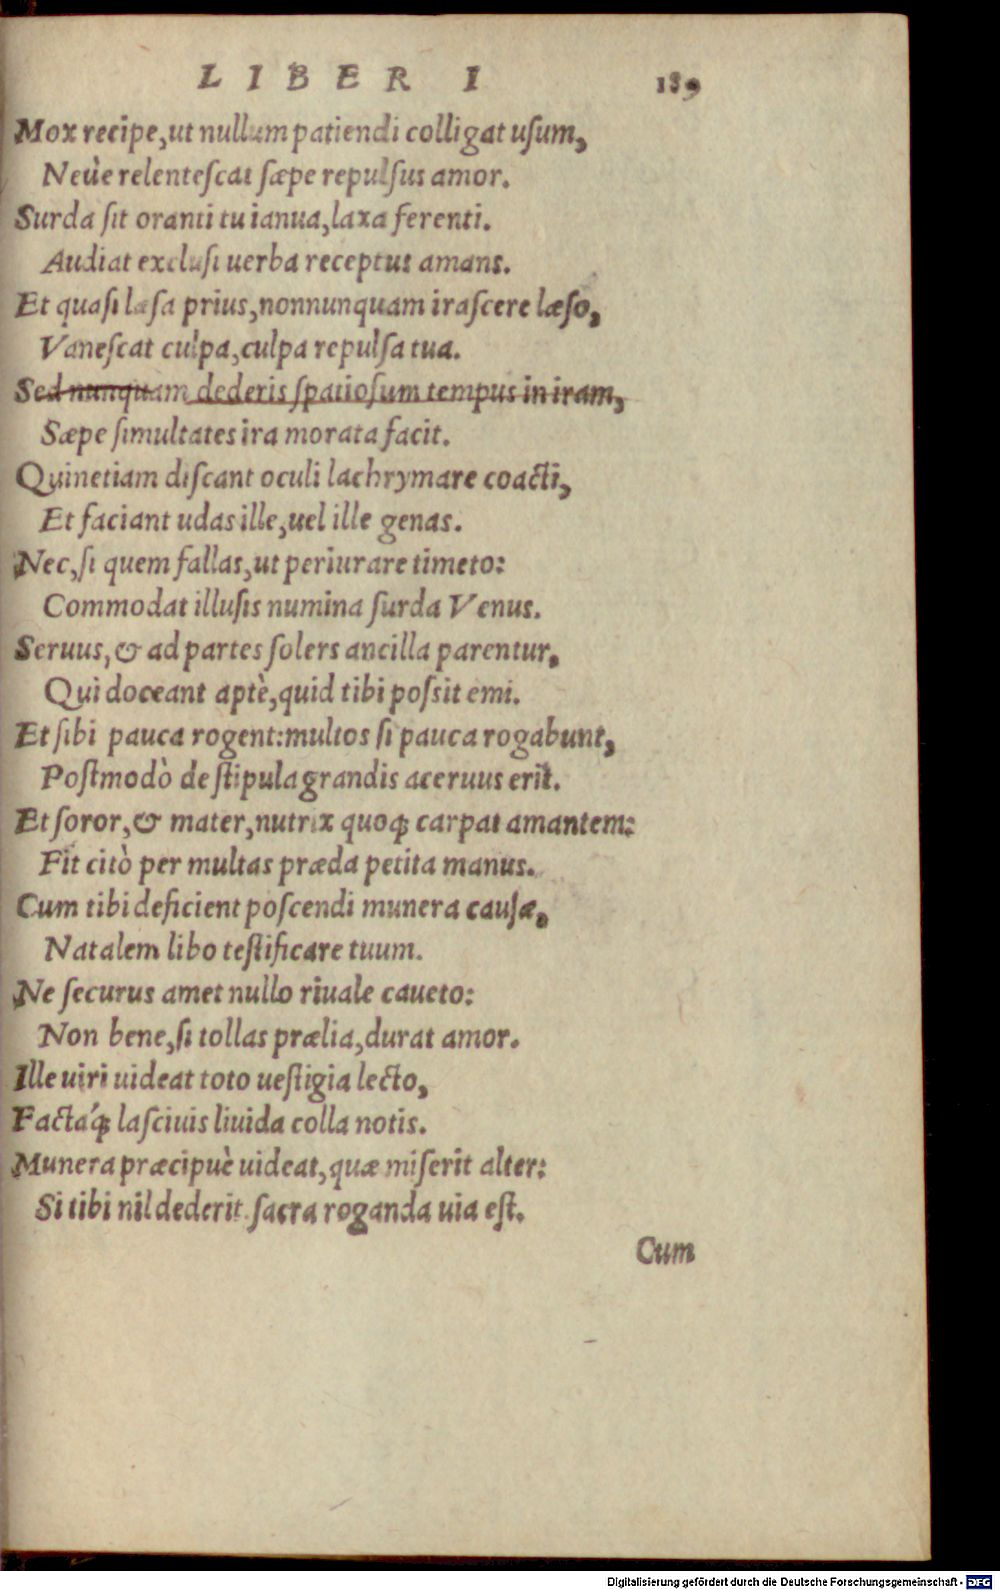 LIBER I 189
Mox recipe, ut nullum patiendi colligat usum,
Neùe relentescat sæpe repulsus amor.
Surda sit oranti tu ianua, laxa ferenti.
Audiat exclusi uerba receptus amans.
Et quasi læsa prius, nonnunquam irascere læso,
Vanescat culpa, culpa repulsa tua.
Sed nunquam dederis spatiosum tempus in iram,
Sæpe simultates ira morata facit.
Quinetiam discant oculi lachrymare coacti,
Et faciant udas ille, uel ille genas.
Nec, si quem fallas, ut periurare timeto:
Commodat illusis numina surda Venus.
Seruus, & ad partes solers ancilla parentur,
Qui doceant aptè, quid tibi possit emi.
Et sibi pauca rogent: multos si pauca rogabunt,
Postmodò de stipula grandis aceruus erit.
Et soror, & mater, nutrix quoq; carpat amantem:
Fit citò per multas præda petita manus.
Cum tibi deficient poscendi munera causæ,
Natalem libo testificare tuum.
Ne securus amet nullo riuale caueto:
Non bene, si tollas prælia, durat amor.
Ille uiri uideat toto uestigia lecto,
Factáq; lasciuis liuida colla notis.
Munera præcipuè uideat, quæ miserit alter:
Si tibi nil dederit. sacra roganda uia est.
Cum
Digitalisierung gefördert durch die Deutsche Forschungsgemeinschaft - DFG